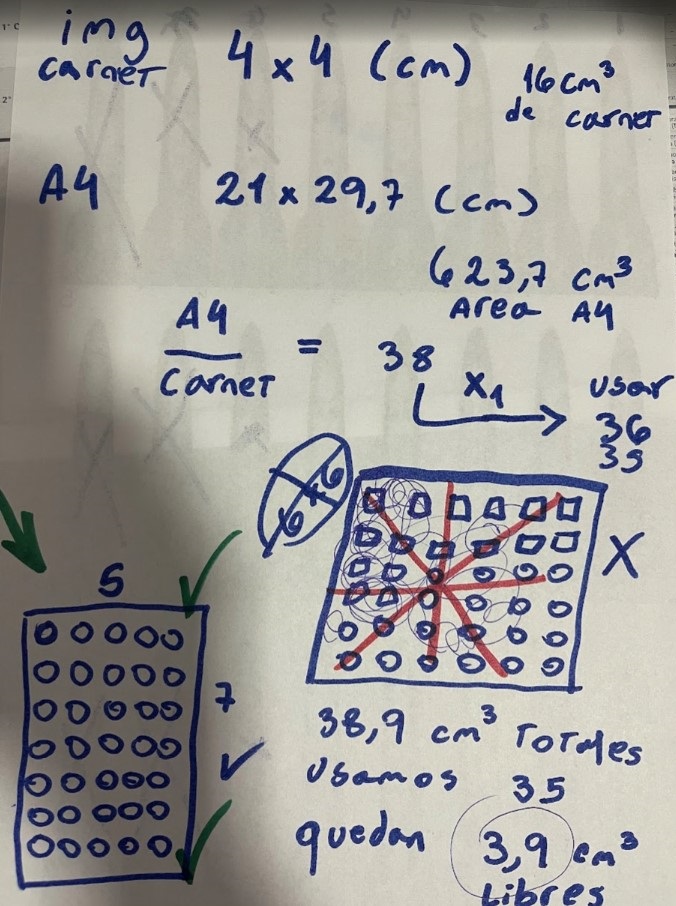 img
carnet 4 x 4 (cm) 16 cm³
de carnet
A4 21 x 29,7 (cm)
623,7 cm³
Area A4
A4
Carnet = 38
X1
usar
36
35
6x6
X
5
7
38,9 cm³ Totales
Usamos 35
quedan 3,9 cm³
Libres